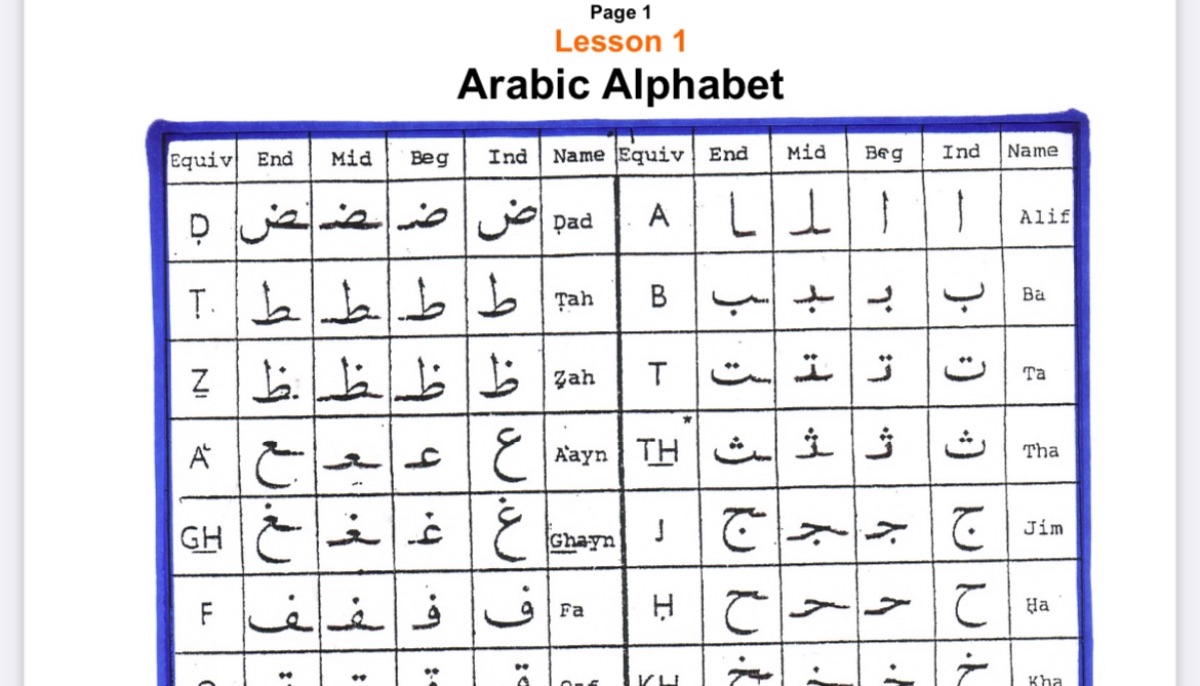 Page 1
Lesson 1
Arabic Alphabet
Equiv End Mid Beg Ind Name Equiv End Mid Beg Ind Name
Ḍ ـض ـضـ ضـ ض Ḍad A ـا ـا ا ا Alif
Ṭ ـط ـطـ طـ ط Ṭah B ـب ـبـ بـ ب Ba
Ẓ ـظ ـظـ ظـ ظ Ẓah T ـت ـتـ تـ ت Ta
Aʿ ـع ـعـ عـ ع Aʿayn TH* ـث ـثـ ثـ ث Tha
GH ـغ ـغـ غـ غ Ghayn J ـج ـجـ جـ ج Jim
F ـف ـفـ فـ ف Fa Ḥ ـح ـحـ حـ ح Ḥa
KH Kha